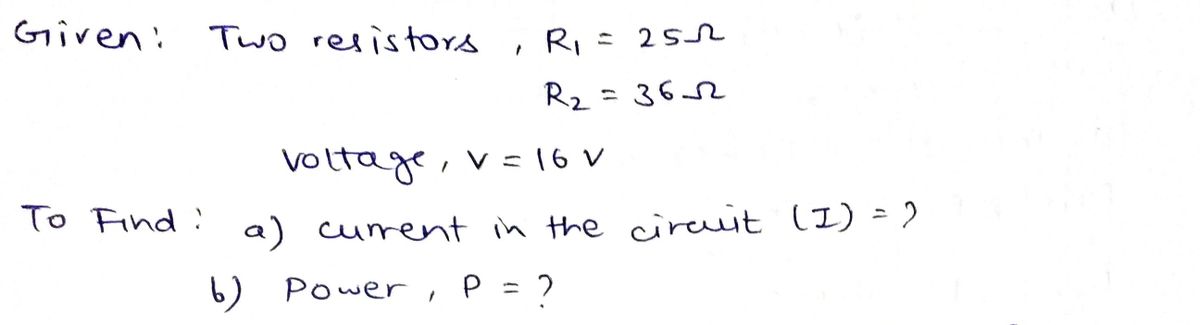 Given: Two resistors, R₁ = 25Ω
R₂ = 36Ω
voltage, V = 16 V
To Find: a) current in the circuit (I) = ?
b) Power, P = ?